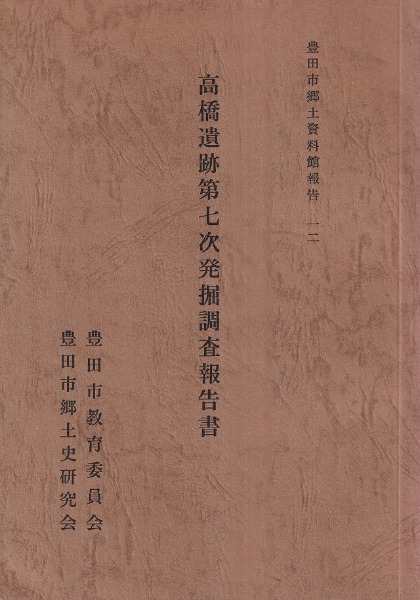 豊田市郷土資料館報告 一二
高橋遺跡第七次発掘調査報告書
豊田市教育委員会
豊田市郷土史研究会